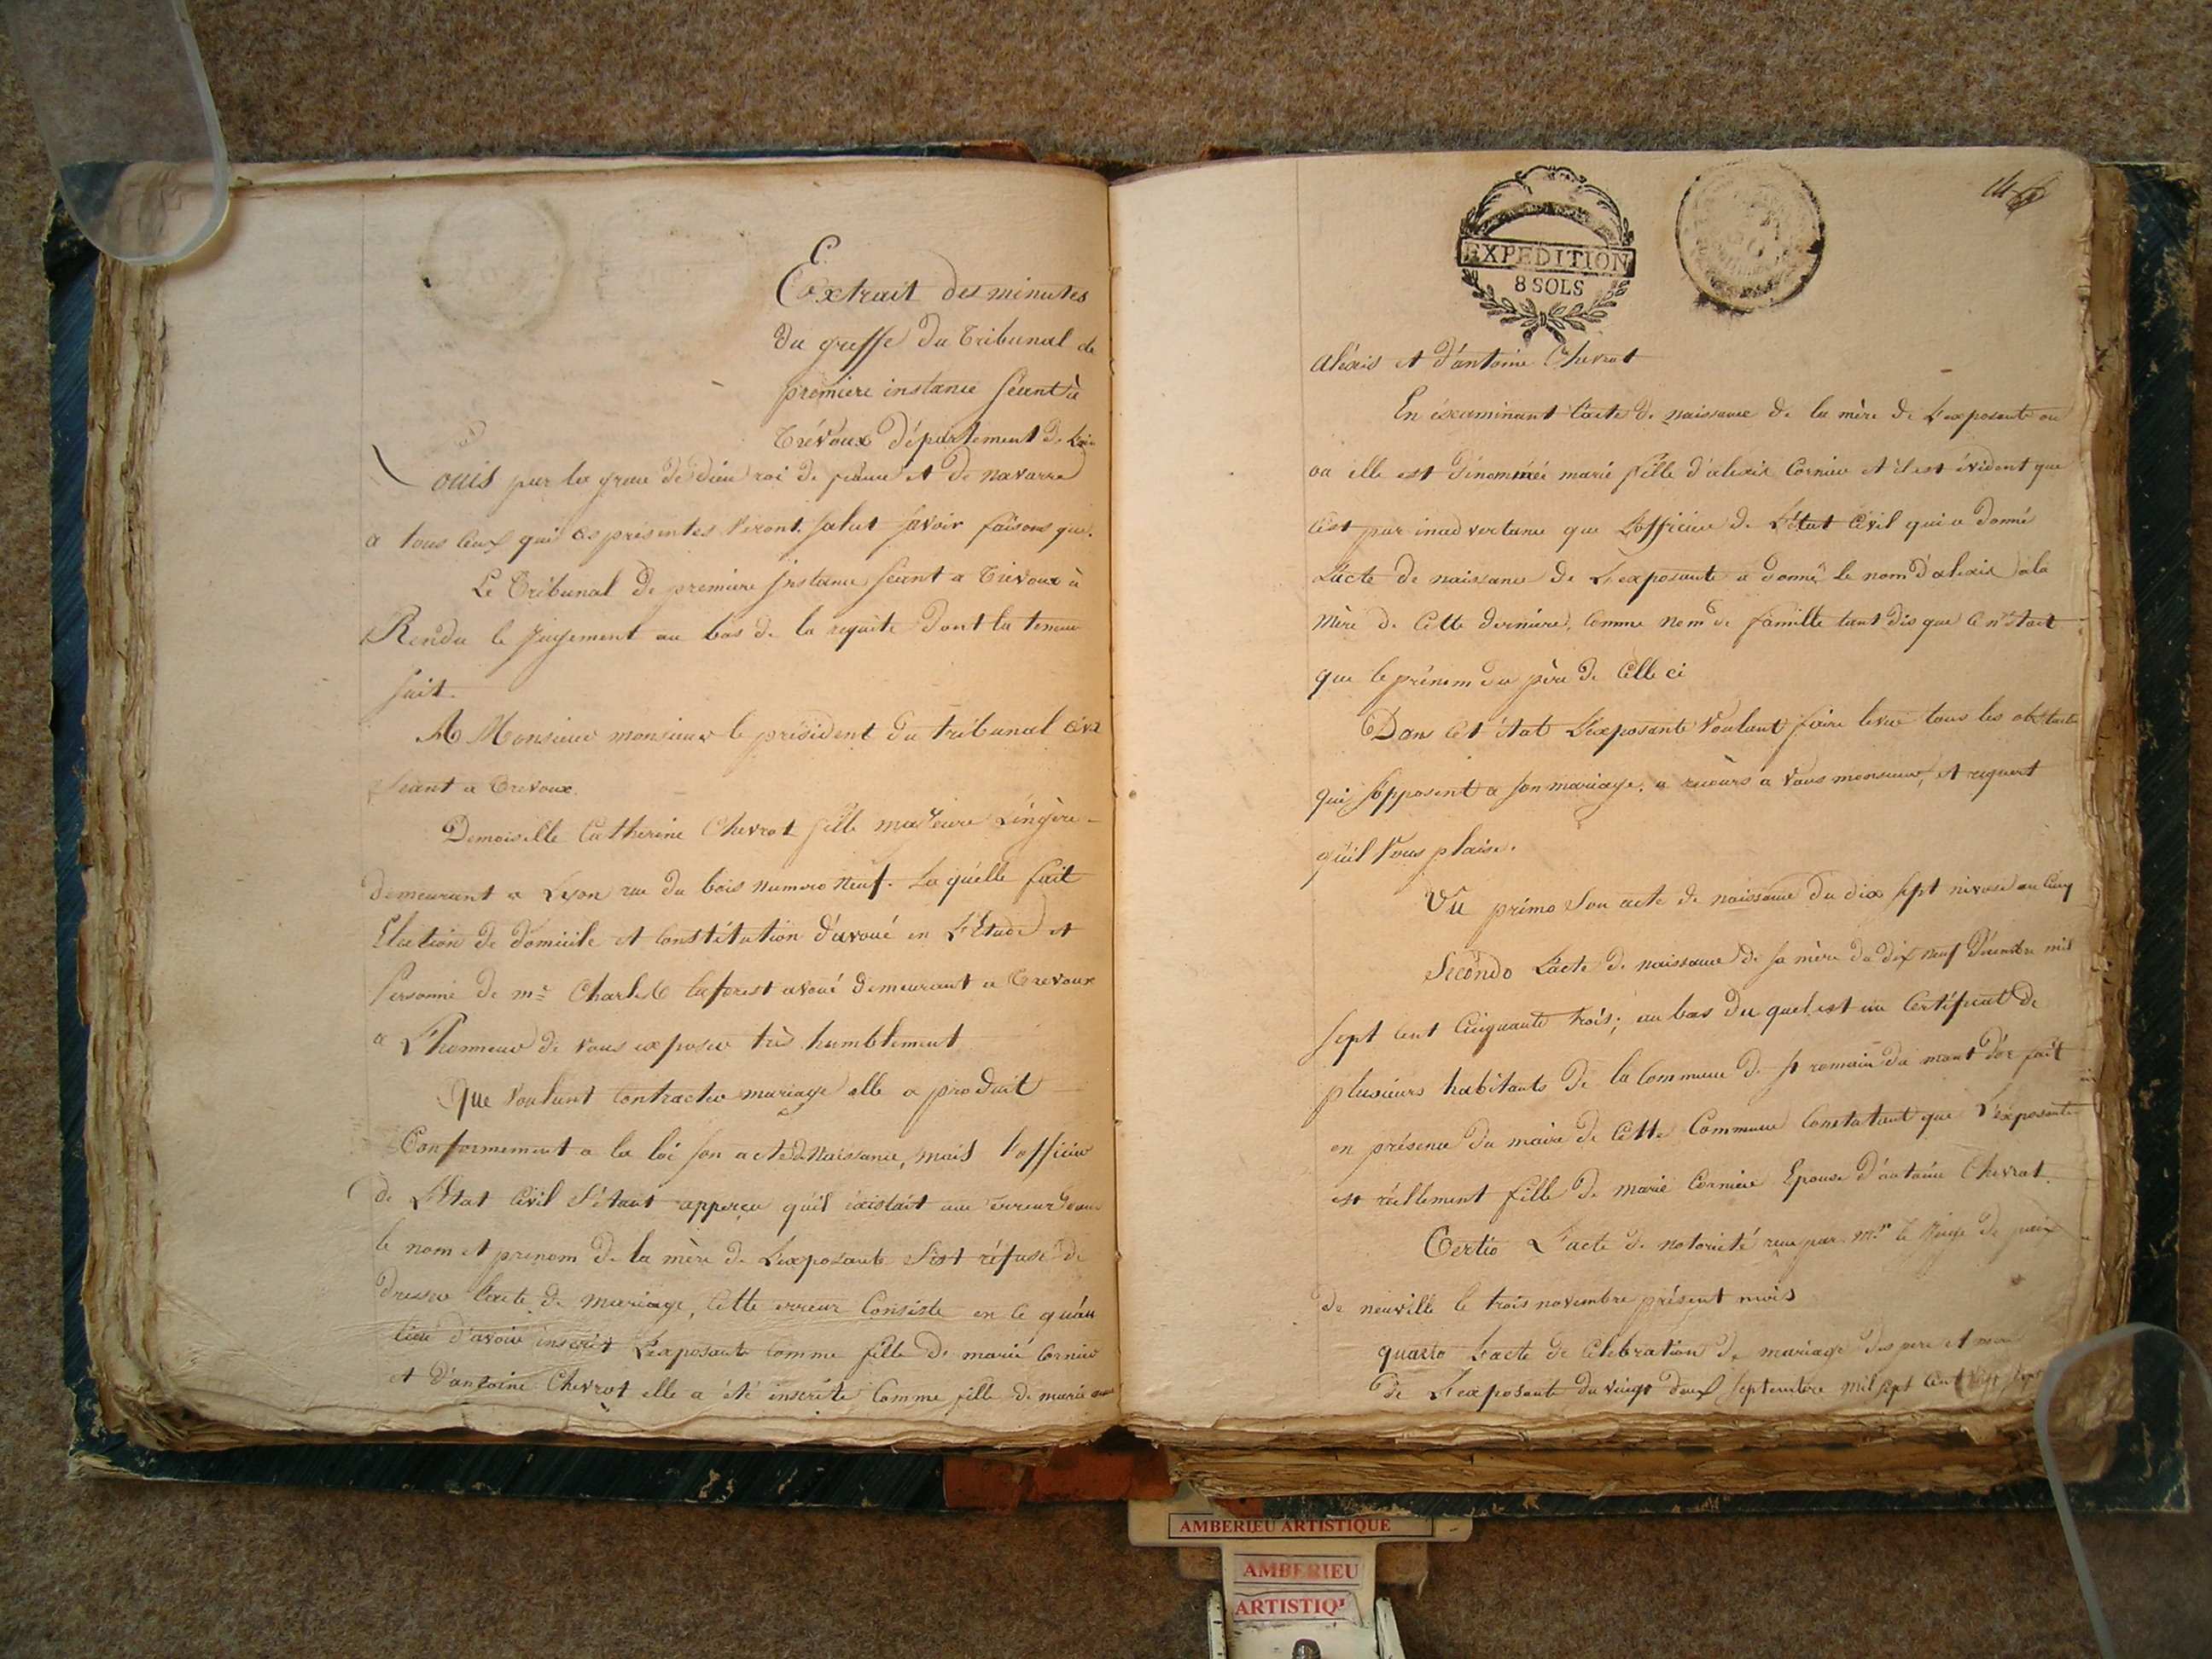 Extrait des minutes
du greffe du tribunal de
premiere instance séant à
Trévoux département de Lain
Louis par la grace de dieu roi de france et de navarre
a tous ceux qui ces présentes verront salut savoir faisons que.
Le Tribunal de premiere instance séant a Trévoux à
Rendu le jugement au bas de la requête dont la teneur
suit.
A Monsieur monsieur le président du tribunal civil
séant a Trevoux.
Demoiselle Catherine Chevrot fille majeure Lingère
demeurant a Lyon rue du bois numero neuf. La quélle fait
Election de domicile et constitution d'avoué en L'Etude et
personne de me Charles laforest avoué demeurant a Trevoux
a L'honneur de vous exposer très humblement
Que voulant contracter mariage elle a produit
Conformement a la loi son acte de naissance, mais l'officier
de L'Etat Civil s'étant apperçu qu'il existait une erreur dans
le nom et prenom de la mère de L'exposante s'est réfusé de
dresser l'acte de mariage, cette erreur consiste en ce qu'au
lieu d'avoir inscrit L'exposante comme fille de marie Cornier
et d'antoine Chevrot elle a été inscrite comme fille de marie
EXPEDITION
8 SOLS
alexis et d'antoine Chevrot
En éxaminant l'acte de naissance de la mère de L'exposante on
oa elle est dénommée marie fille d'alexis Cornier et il est évident que
C'est par inadvertance que L'officier de L'état Civil qui a donné
L'acte de naissance de L'exposante a donné le nom d'alexis a la
mère de Cette derniere, comme nom de famille tant dis que ce n'était
que le prénom du père de Celle ci
Dans cet état L'exposante voulant faire lever tous les obstacles
qui s'opposent a son mariage, a recours a vous monsieur, et requert
qu'il vous plaise.
Vu primo son acte de naissance du dix sept nivose an Cinq
Secondo L'acte de naissance de sa mère du dix neuf décembre mil
sept cent Cinquante trois; au bas du quel est un Certificat de
plusieurs habitants de la Commune de st romain du mont d'or fait
en présence du maire de Cette Commune Constatant que L'exposante
est réellement fille de marie Corniere Epouse d'antoine Chevrat.
Tertio L'acte de notorieté reçu par mr le Juge de paix
de neuville le trois novembre présent mois
quarto L'acte de Célébration de mariage des pere et mere
de L'exposante du vingt deux septembre mil sept cent
AMBERIEU ARTISTIQUE
AMBERIEU
ARTISTIQ